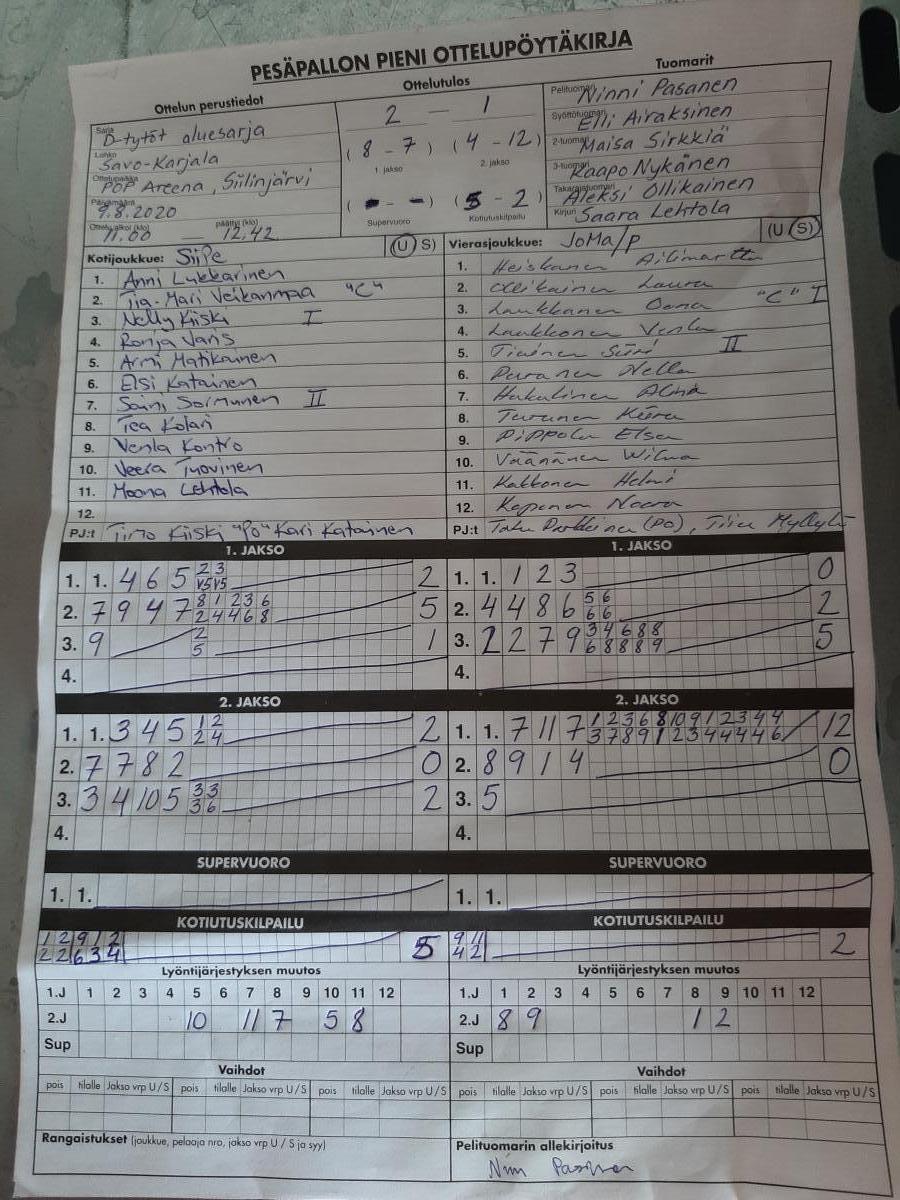 PESÄPALLON PIENI OTTELUPÖYTÄKIRJA
Ottelun perustiedot
Ottelutulos
Tuomarit
Sarja D-tytöt aluesarja
Lohko Savo-Karjala
Ottelupaikka POP Areena, Siilinjärvi
Päivämäärä 9.8.2020
Ottelu alkoi (klo) 11.00 päättyi (klo) 12.42
2 - 1
( 8 - 7 ) ( 4 - 12 )
1. jakso 2. jakso
( - - ) ( 5 - 2 )
Supervuoro Kotiutuskilpailu
Pelituomari Ninni Pasanen
Syöttötuomari Elli Airaksinen
2-tuomari Maisa Sirkkiä
3-tuomari Kaapo Nykänen
Takarajatuomari Aleksi Ollikainen
Kirjuri Saara Lehtola
Kotijoukkue: SiiPe (U S)
1. Anni Lukkarinen
2. Tia-Mari Veikanmaa "C"
3. Nelly Kiiski I
4. Ronja Varis
5. Armi Matikainen
6. Elsi Katainen
7. Saini Sormunen II
8. Tea Kolari
9. Venla Kontro
10. Veera Tuovinen
11. Moona Lehtola
12.
PJ:t Timo Kiiski "PO" Kari Katainen
Vierasjoukkue: JoMa/P (U S)
1. Heiskanen
2. Laura
3. Laukkanen Oona "C" I
4. Laukkanen Venla
5. Tiainen Siiri II
6. Puranen Nella
7. Hakulinen Alina
8. Turunen Kiira
9. Pippola Elsa
10. Väänänen Wilma
11. Kakkonen Helmi
12. Kaponen Noora
PJ:t (PO),
1. JAKSO
1. 1. 4 6 5 2 3 2
V5 V5
2. 7 9 4 7 8 1 2 3 6 5
2 4 4 6 8
3. 9 2 1
5
4.
1. JAKSO
1. 1. 1 2 3 0
2. 4 4 8 6 5 6 2
6 6
3. 2 2 7 9 3 4 6 8 8 5
6 8 8 8 9
4.
2. JAKSO
1. 1. 3 4 5 1 2 2
2 4
2. 7 7 8 2 0
3. 3 4 10 5 3 3 2
3 6
4.
2. JAKSO
1. 1. 7 11 7 1 2 3 6 8 10 9 1 2 3 4 4 12
3 7 8 9 1 2 3 4 4 4 4 6
2. 8 9 1 4 0
3. 5
4.
SUPERVUORO
1. 1.
SUPERVUORO
1. 1.
KOTIUTUSKILPAILU
1 2 9 1 2 5
2 2 6 3 4
KOTIUTUSKILPAILU
9 11 2
4 2
Lyöntijärjestyksen muutos
1.J 1 2 3 4 5 6 7 8 9 10 11 12
2.J 10 11 7 5 8
Sup
Lyöntijärjestyksen muutos
1.J 1 2 3 4 5 6 7 8 9 10 11 12
2.J 8 9 1 2
Sup
Vaihdot
pois tilalle Jakso vrp U/S pois tilalle Jakso vrp U/S pois tilalle Jakso vrp U/S
Vaihdot
pois tilalle Jakso vrp U/S pois tilalle Jakso vrp U/S pois tilalle Jakso vrp U/S
Rangaistukset (joukkue, pelaaja nro, jakso vrp U / S ja syy)
Pelituomarin allekirjoitus